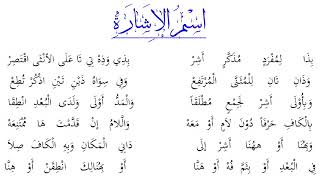 اسْمُ الْإِشَارَةِ
بِذَا لِمُفْرَدٍ مُذَكَّرٍ أَشِرْ بِذِي وَذِهْ تِي تَا عَلَى الْأُنْثَى اقْتَصِرْ
وَذَانِ تَانِ لِلْمُثَنَّى الْمُرْتَفِعْ وَفِي سِوَاهُ ذَيْنِ تَيْنِ اذْكُرْ تُطِعْ
وَبِأُولَى أَشِرْ لِجَمْعٍ مُطْلَقَاً وَالْمَدُّ أَوْلَى وَلَدَى الْبُعْدِ انْطِقَا
بِالْكَافِ حَرْفَاً دُونَ لَامٍ أَوْ مَعَهْ وَاللَّامُ إِنْ قَدَّمْتَ هَا مُمْتَنِعَهْ
وَبِهُنَا أَوْ هَهُنَا أَشِرْ إِلَى دَانِي الْمَكَانِ وَبِهِ الْكَافَ صِلَا
فِي الْبُعْدِ أَوْ بِثَمَّ فُهْ أَوْ هَنَّا أَوْ بِهُنَالِكَ انْطِقَنْ أَوْ هِنَّا